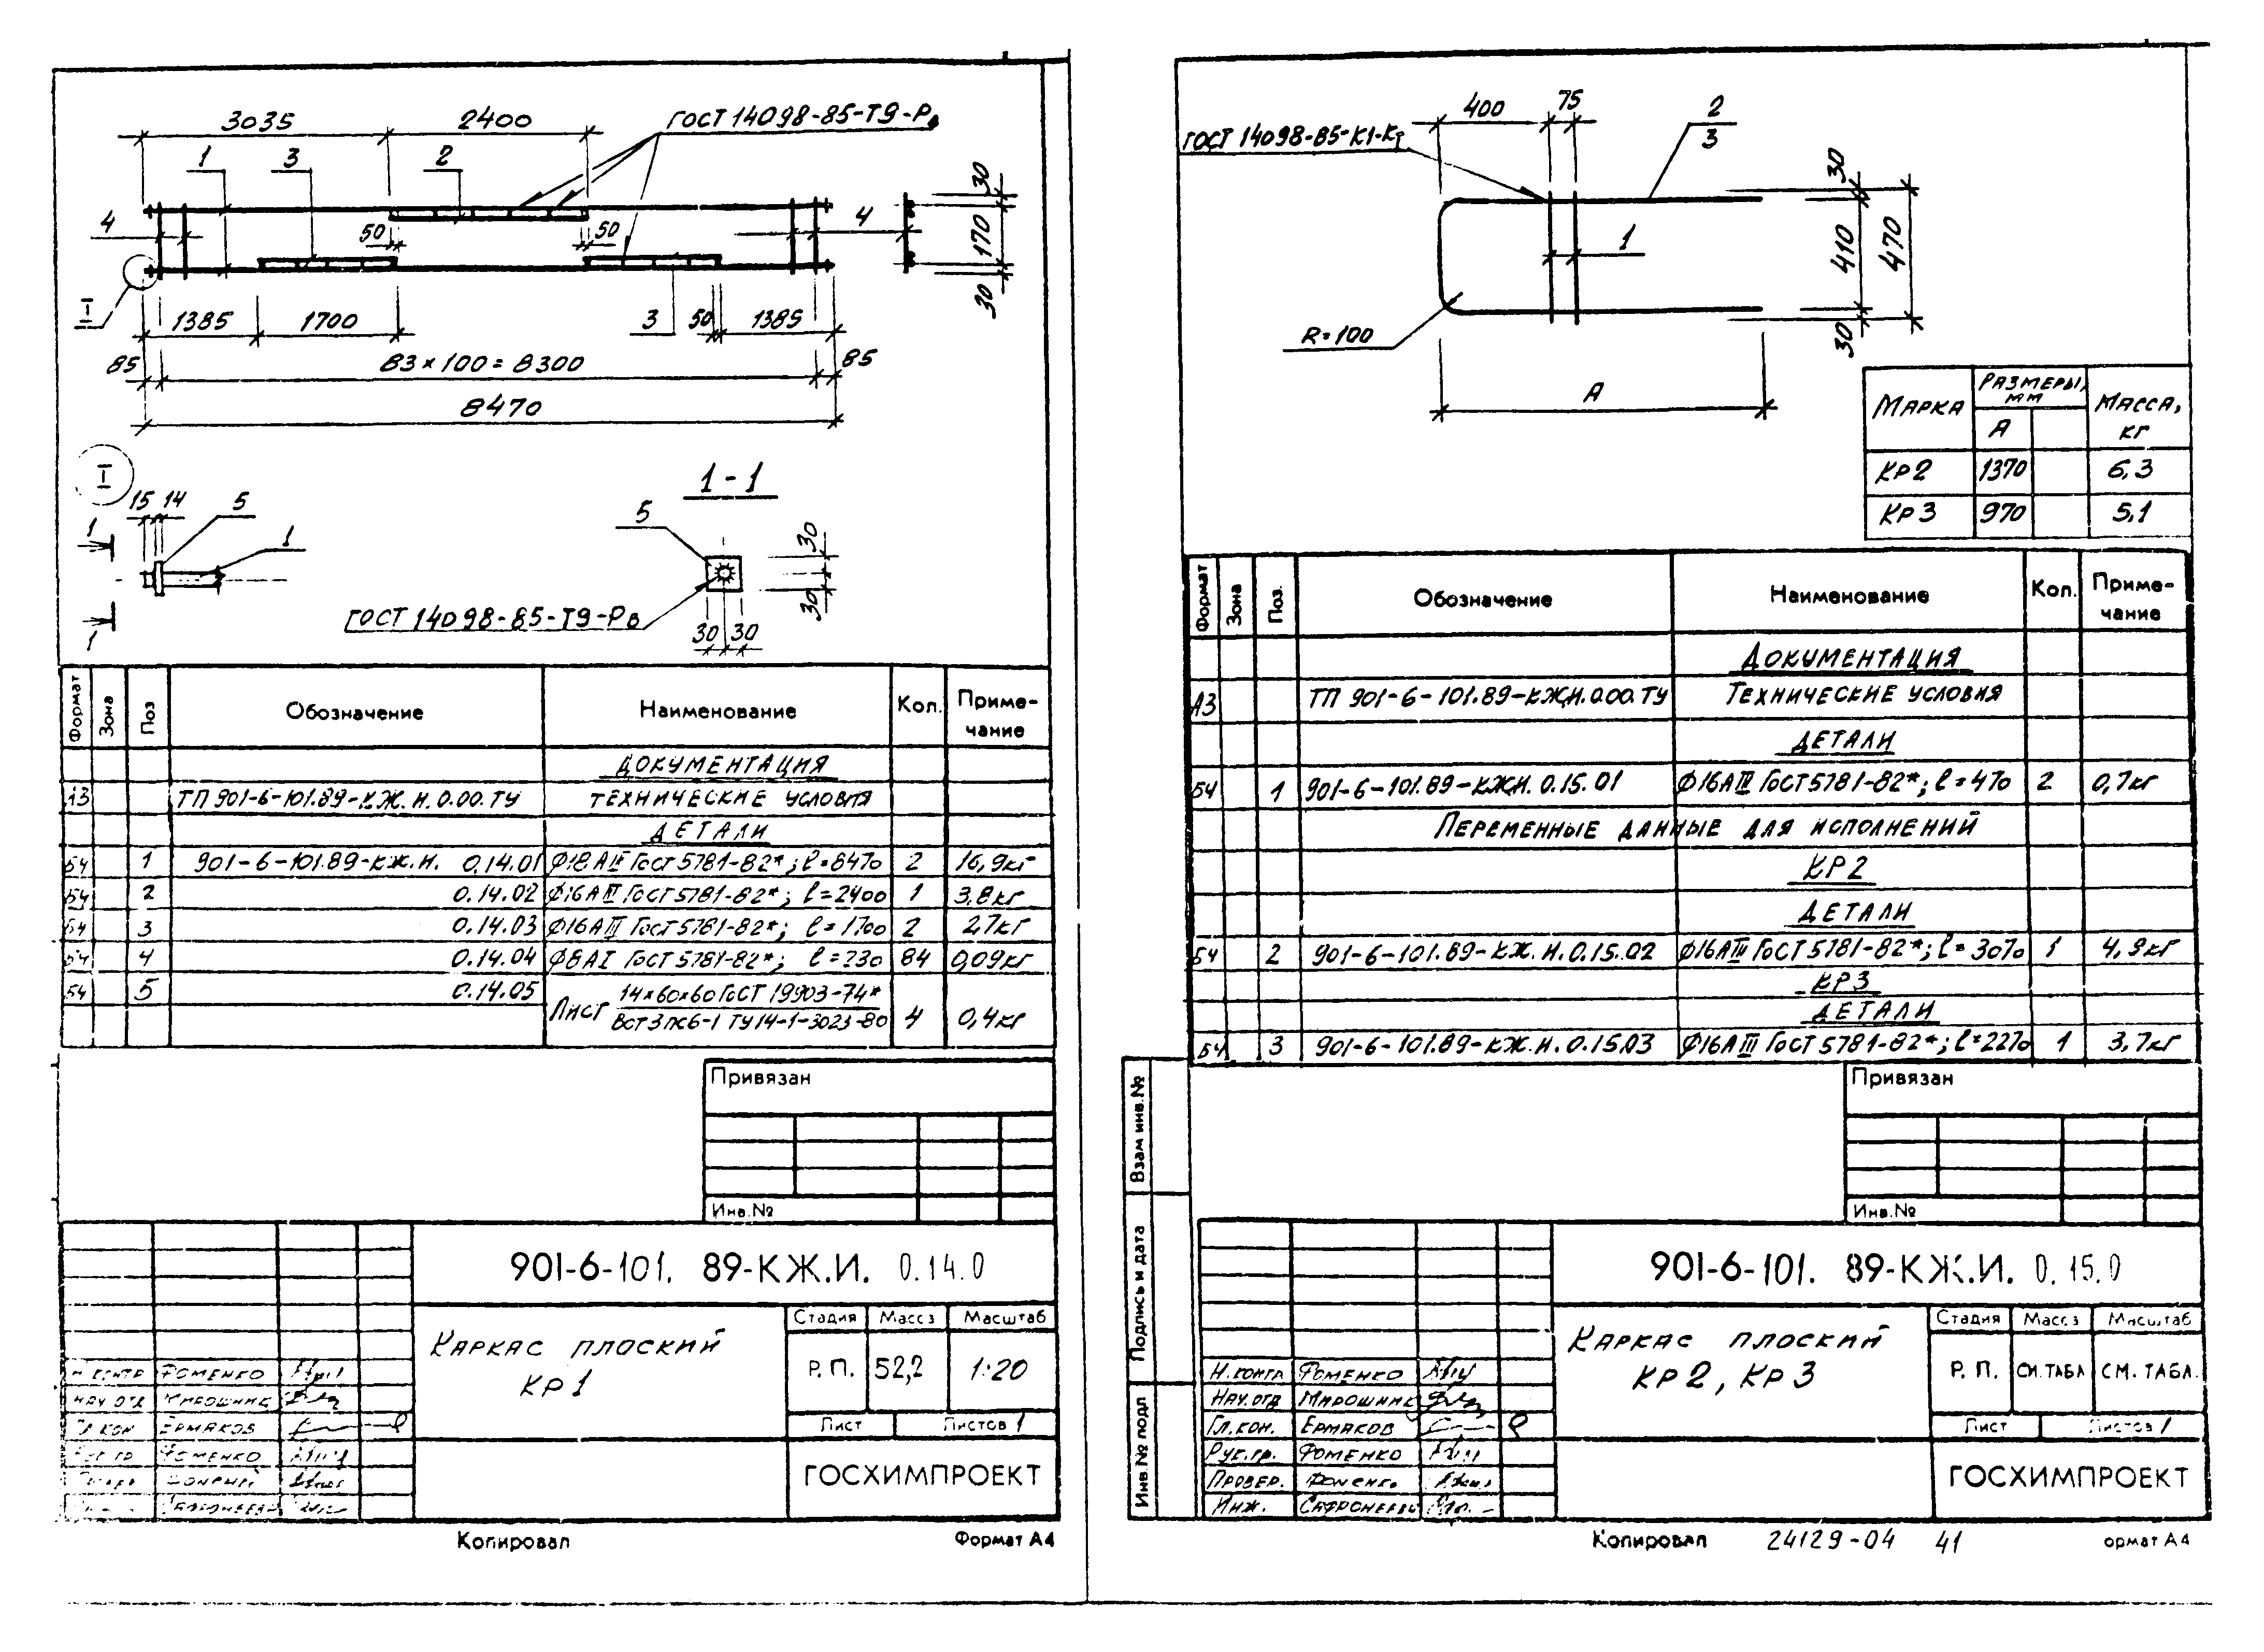 3035
2400
ГОСТ 14098-85-Т9-Рв
1
3
2
4
50
50
4
30
170
30
I
1385
1700
3
50
1385
85
83×100=8300
85
8470
I
15 14
5
1
1
1
1-1
5
30
30
30 30
ГОСТ 14098-85-Т9-Рв
Формат Зона Поз Обозначение Наименование Кол. Приме-
чание
Документация
А3 ТП 901-6-101.89-КЖ.И.0.00.ТУ Технические условия
Детали
Б4 1 901-6-101.89-КЖ.И. 0.14.01 Ф18АIII ГОСТ 5781-82*; ℓ=8470 2 16,9кг
Б4 2 0.14.02 Ф16АIII ГОСТ 5781-82*; ℓ=2400 1 3,8кг
Б4 3 0.14.03 Ф16АIII ГОСТ 5781-82*; ℓ=1700 2 2,7кг
Б4 4 0.14.04 Ф8АI ГОСТ 5781-82*; ℓ=230 84 0,09кг
Б4 5 0.14.05 Лист 14×60×60 ГОСТ 19903-74*
ВСт3пс6-1 ТУ14-1-3023-80 4 0,4кг
Привязан
Инв.№
901-6-101. 89-КЖ.И. 0.14.0
Каркас плоский
КР1
Стадия Масса Масштаб
Р.П. 52,2 1:20
Лист Листов 1
ГОСХИМПРОЕКТ
Н.контр Фоменко
Нач.отд Мирошник
Гл.кон Ермаков
Рук.гр Фоменко
Копировал Формат А4
400 75
2
3
ГОСТ 14098-85-К1-Кт
30
410
470
30
1
R=100
А
Марка Размеры, мм Масса, кг
А
КР2 1370 6,3
КР3 970 5,1
Формат Зона Поз. Обозначение Наименование Кол. Приме-
чание
Документация
А3 ТП 901-6-101.89-КЖ.И.0.00.ТУ Технические условия
Детали
Б4 1 901-6-101.89-КЖ.И.0.15.01 Ф16АIII ГОСТ 5781-82*; ℓ=470 2 0,7кг
Переменные данные для исполнений
КР2
Детали
Б4 2 901-6-101.89-КЖ.И.0.15.02 Ф16АIII ГОСТ 5781-82*; ℓ=3070 1 4,9кг
КР3
Детали
Б4 3 901-6-101.89-КЖ.И.0.15.03 Ф16АIII ГОСТ 5781-82*; ℓ=2270 1 3,7кг
Взам инв.№
Подпись и дата
Инв.№ подл
Привязан
Инв.№
901-6-101. 89-КЖ.И. 0.15.0
Каркас плоский
КР2, КР3
Стадия Масса Масштаб
Р.П. См.табл См. табл.
Лист Листов 1
ГОСХИМПРОЕКТ
Н.контр Фоменко
Нач.отд Мирошник
Гл.кон. Ермаков
Рук.гр. Фоменко
Провер.
Инж.
Копировал 24129-04 41 ормат А4